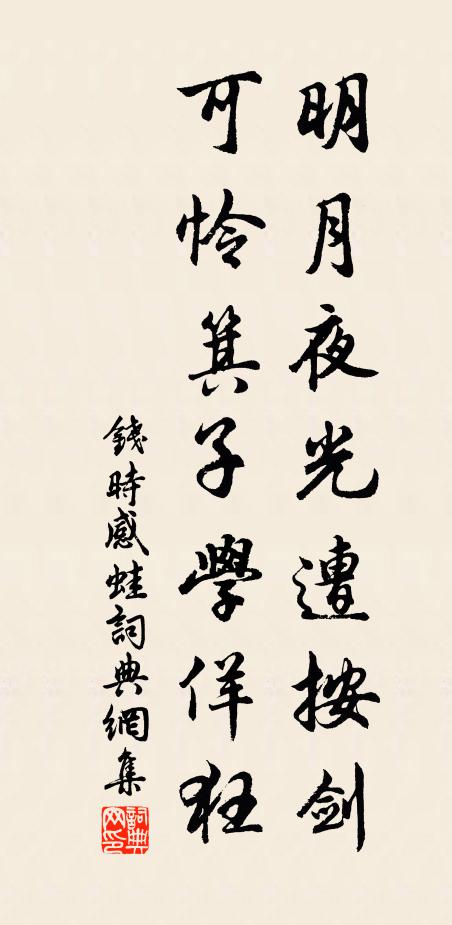 明月夜光遭按劍
可憐箕子學佯狂
錢時感蛙詞典網集
詞典网印